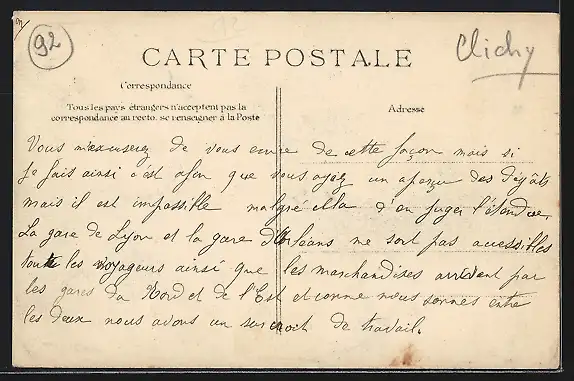 92
Clichy
CARTE POSTALE
Correspondance
Tous les pays étrangers n'acceptent pas la
correspondance au recto. se renseigner à la Poste
Adresse
Vous m'excuserez de vous envoie de cette façon mais si
je fais ainsi c'est afin que vous ayez un aperçu des dégâts
mais il est impossible malgré cela d'en juger l'étendue.
La gare de Lyon et la gare d'Orléans ne sont pas accessibles
toute les voyageurs ainsi que les marchandises arrivent par
les gares du Nord et de l'Est et comme nous sommes entre
les deux nous avons un surcroit de travail.